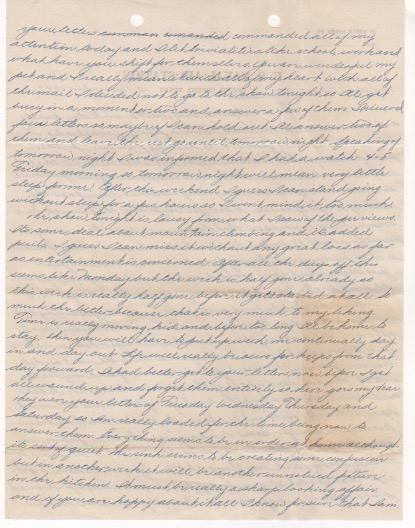 your letters common comanded commanded all of my
attention today and I let trivialities like school, work and
what have you shift for themselves. You're wonderful my
pet and I really mean it with all my heart & with all of
the mail I decided not to go to the show tonight so I'll get
busy in a moment or two and answer a few of them. I received
four letters so maybe if I can hold out I'll answer two of
them and leave the rest go until tomorrow night. Speaking of
tomorrow night I was informed that I had a watch 4-8
Friday morning so tomorrow night will mean very little
sleep for me. After the weekend I guess I can stand going
without sleep for a few hours so I won't mind it too much
The show tonight is lousy from what I saw of the previews.
Its some deal about mountain climbing and its added
perils. I guess I can miss it without any great loss as far
as entertainment is concerned. After all the days off this
seems like Monday but the week is half gone already so
this week is really half gone before it gets started at all. So
much the better because that is very much to my liking
Time is really moving kid and before too long I'll be home to
stay. Then you will have to put up with me continually day
in and day out. Life will really be ours for keeps from that
day forward. I had better get to your letters now before I get
all wound up and forget them entirely so here goes my dear
They were your letters of Tuesday Wednesday Thursday and
Saturday so I'm really loaded for the time being now to
answer them. Everything seems to be in order at home although
its rather quiet. The sink seems to be creating some confusion
but in another week it will be another unnoticed fixture
in the kitchen. It must be really a sharp looking affair
and if you are happy about it all I know for sure that I am